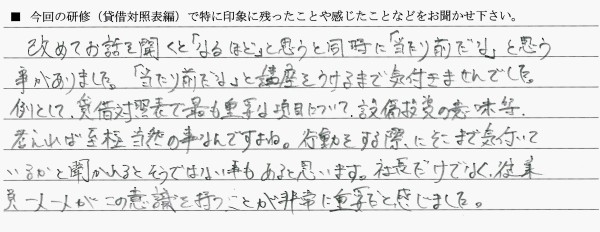 ■ 今回の研修（貸借対照表編）で特に印象に残ったことや感じたことなどをお聞かせ下さい。
改めてお話を聞くと「なるほど」と思うと同時に「当たり前だな」と思う
事がありました。「当たり前だな」と講座をうけるまで気付きませんでした。
例として、貸借対照表で最も重要な項目について、設備投資の意味等、
考えれば至極当然の事なんですよね。行動をする際にそこまで気付いて
いるかと聞かれるとそうではない事もあると思います。社長だけでなく、従業
員一人一人がこの意識を持つことが非常に重要だと感じました。